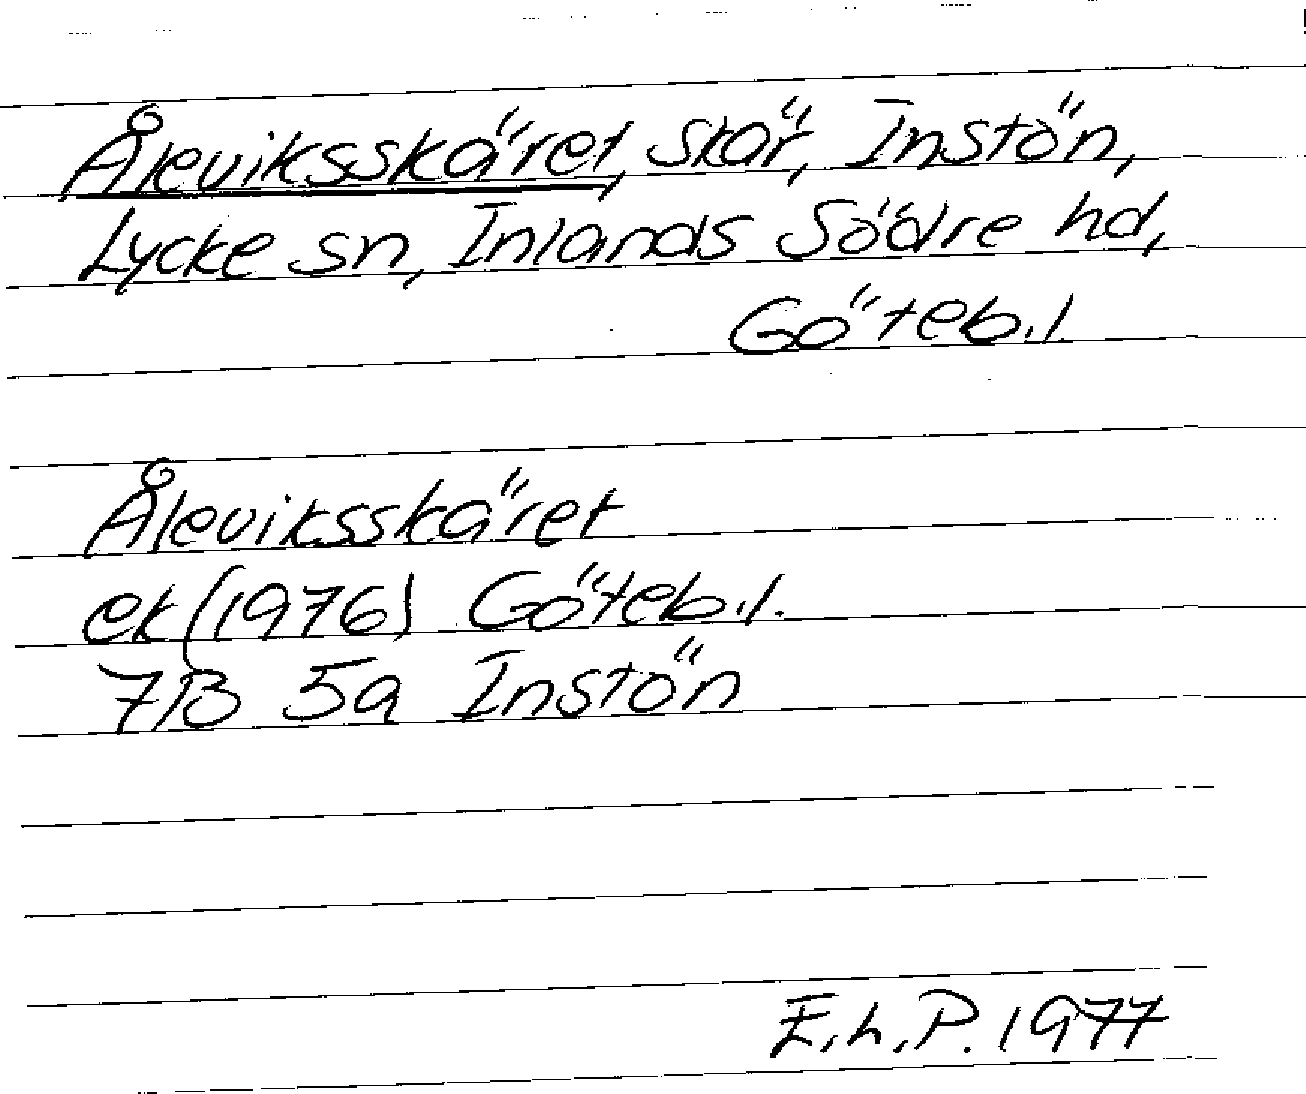 Åleviksskäret, skär, Instön,
Lycke sn, Inlands Södre hd,
Göteb.l.
Åleviksskäret
ek (1976) Göteb.l.
7B 5a Instön
E.h.P. 1977